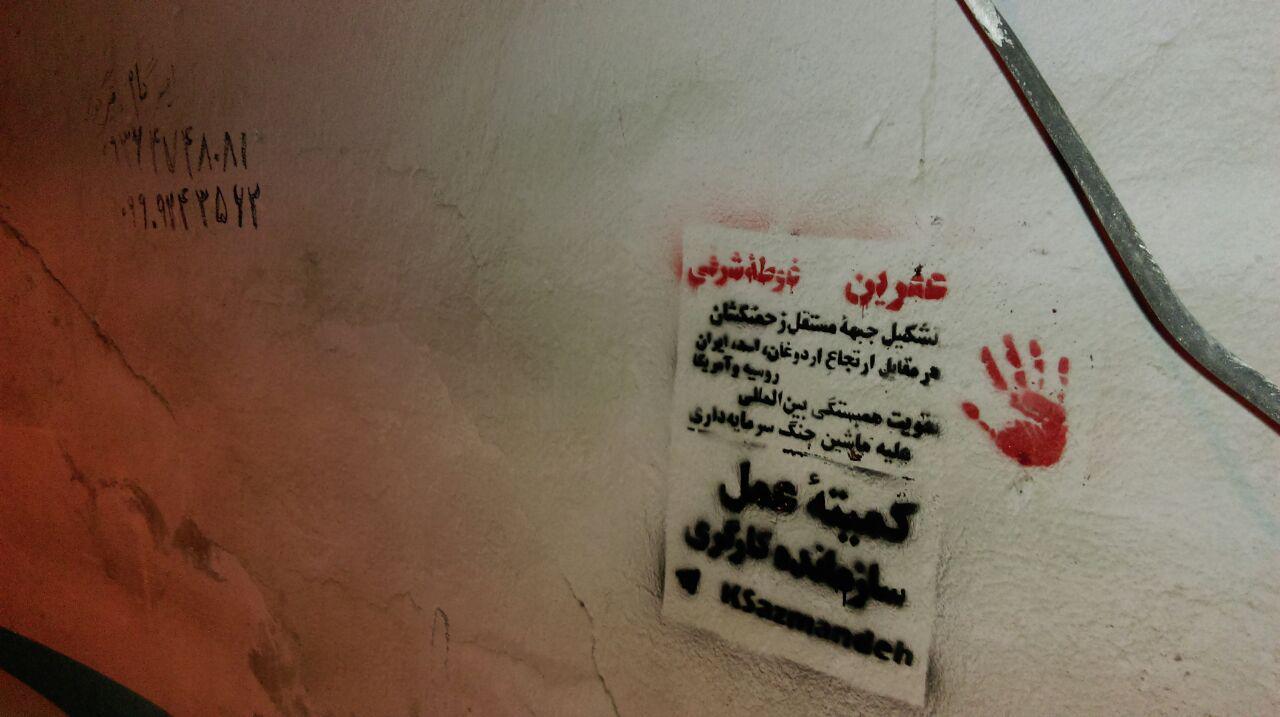 ۰۹۳۶۴۷۴۸۰۸۱
عفرین غوطهٔ شرقی
تشکیل جبههٔ مستقل زحمتکشان
در مقابل ارتجاع اردوغان، اسد، ایران
روسیه و آمریکا
تقویت همبستگی بین‌المللی
علیه ماشین جنگ سرمایه‌داری
کمیتهٔ عمل
سازمانده کارگری
KSazmandeh